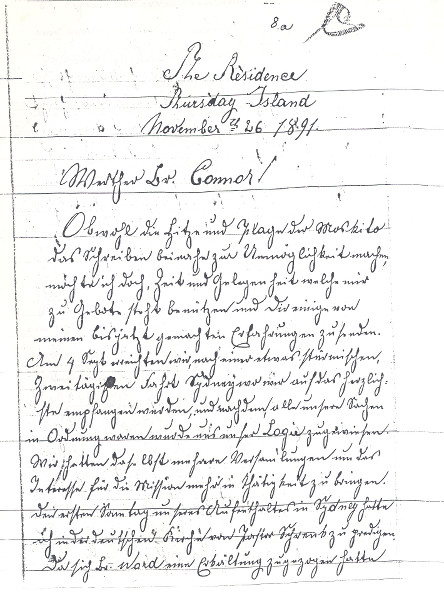 8a
The Residence
Thursday Island
November 26 1891.
Werther Br. Connor!
Obwohl die Hitze und Plage der Moskito
das Schreiben beinahe zur Unmöglichkeit machen,
möchte ich doch, Zeit und Gelegenheit welche mir
zu Gebote steht benützen und Dir einige von
meinen bis jetzt gemachten Erfahrungen zusenden.
Am 4 Sept. erreichten wir, nach einer etwas stürmischen,
zweitägigen Fahrt Sydney wo wir auf das herzlich-
ste empfangen wurden, und nachdem alle unsere Sachen
in Ordnung waren wurde uns unser Logie zugewiesen.
Wir hatten daselbst mehrere Versammlungen um das
Interesse für die Mission mehr in Thätigkeit zu bringen.
Den ersten Sonntag unseres Aufenthaltes in Sydney hatte
ich in der deutschen Kirche von Pastor Schenk zu predigen
Da sich Br. Ward eine Erkältung zugezogen hatte